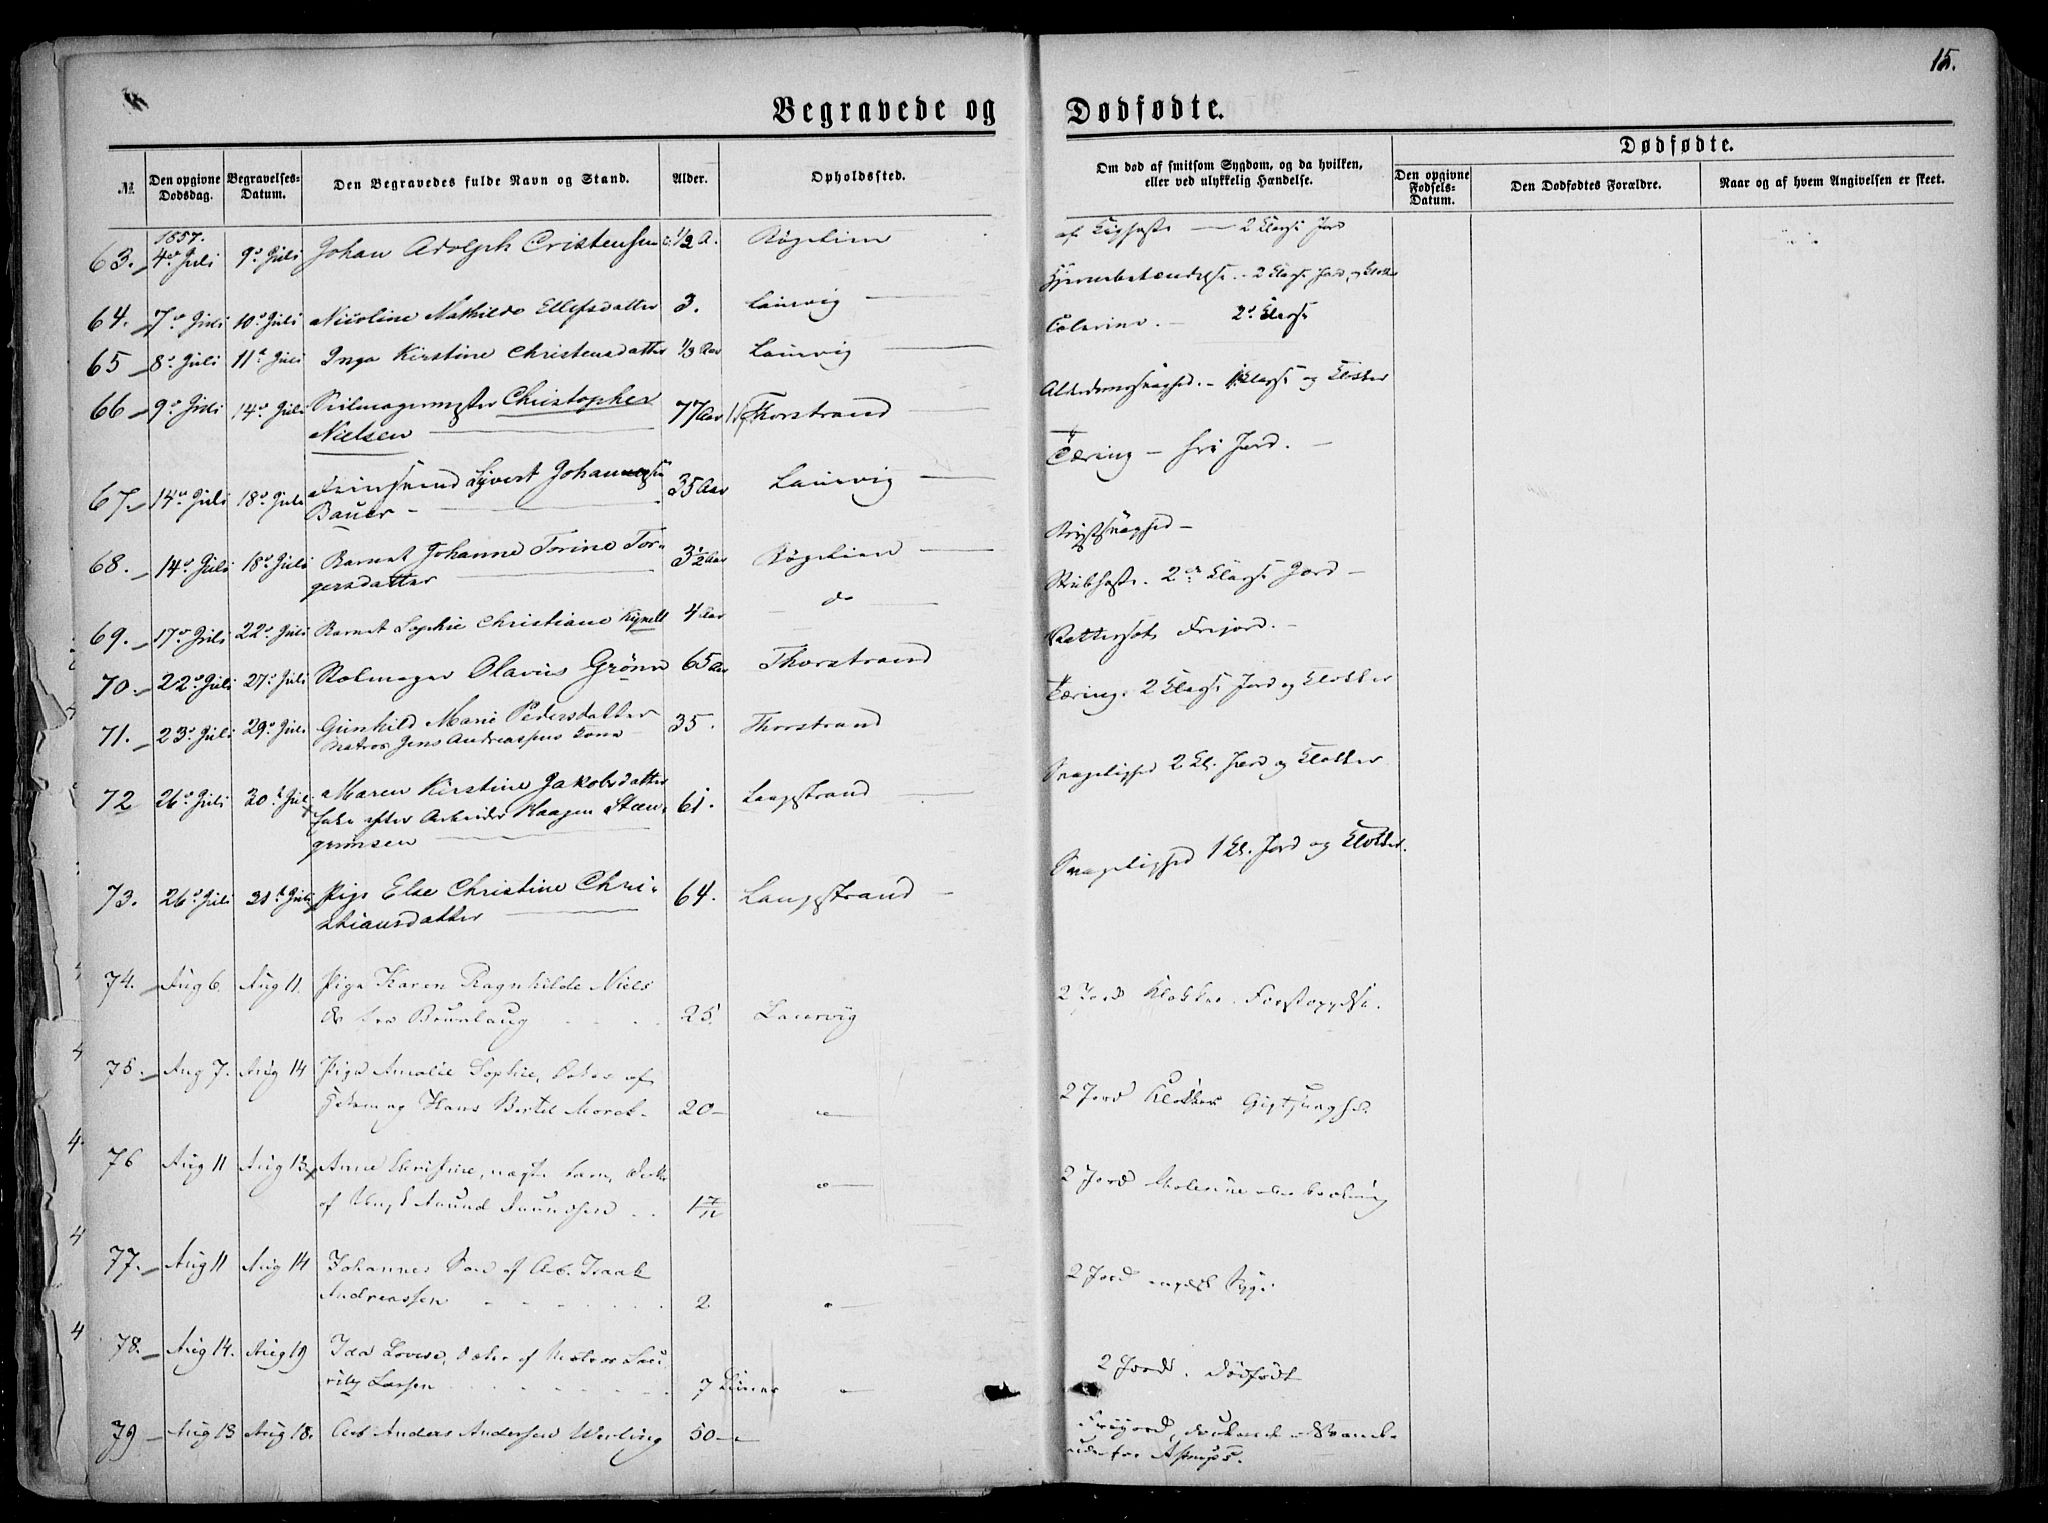 15.
Begravede og Dødfødte.
№
Den opgivne Dødsdag.
Begravelses-Datum.
Den Begravedes fulde Navn og Stand.
Alder.
Opholdssted.
Om død af smitsom Sygdom, og da hvilken, eller ved ulykkelig Hændelse.
Dødfødte.
Den opgivne Fødsels-Datum.
Den Dødfødtes Forældre.
Naar og af hvem Angivelsen er skeet.
1857.
63. 4de Juli 9de Juli Johan Adolph Cristensen 1/2 A. Bøgelien af 2 Klasse Jord
64. 7de Juli 10de Juli Nicoline Mathilde Ellefsdatter 3. Laurvig Hjernebetændelse. - 2 Klasse Jord, og Klokker
65 8de Juli 11te Juli Inga Kirstine Christensdatter 1/3 Aar Laurvig Colerine. - 2de Klasse
66 9de Juli 14de Juli Seilmagermester Christopher
Nielsen 77 Aar Thorstrand Alderdomssvaghed. - 1 Klasse og Klokker
67. 14de Juli 18de Juli Syvert Johannesen
Bauer 35 Aar Laurvig Tæring - fri Jord.
68. 14de Juli 18de Juli Barnet Johanne Torine Tor-
gersdatter 3 1/2 Aar Bøgelien Brystsvaghed
69. 17de Juli 22de Juli Barnet Sophie Christiane 4 Aar do Strubhoste. 2den Klasse Jord
70. 22de Juli 27de Juli Stolmager Olavus Grønn 65 Aar Thorstrand Frijord.
71. 23de Juli 29de Juli Gunhild Marie Pedersdatter
Matros Jens Andreassens Kone 35. Thorstrand Tæring. 2 Klasse Jord og Klokker
72 26de Juli 30te Juli Maren Kirstine Jakobsdatter
Enke efter Arbeider Haagen Steen-
grimsen 61. Langestrand Svagelighed 2 Kl. Jord og Klokker
73. 26de Juli 31te Juli Pige Else Christine Chri-
stiansdatter 64. Langestrand Svagelighed 1 Kl. Jord og Klokker.
74. Aug 6. Aug 11. Pige Karen Ragnhilde Niels
d. fra Brunlaug 25. Laurvig 2 Jord Klokker.
75. Aug 7. Aug 14 Pige Amalie Sophie, Datter af
Hans Bertel 20 " 2 Jord Klokker
76 Aug 11 Aug 13 Anne Christine, uægte Barn, Datter
af Amund 1 7/12 " 2 Jord Kolerine
77. Aug 11 Aug 14 Johannes Søn af Arb. Isaak
Andreassen 2 " 2 Jord
78. Aug 14. Aug 19 Ida Lovise, Datter af Matros Lau
ritz Larsen 7 Timer " 2 Jord. Dødfødt
79 Aug 13 Aug 18. Arb Anders Andersen 50 " Frijord,